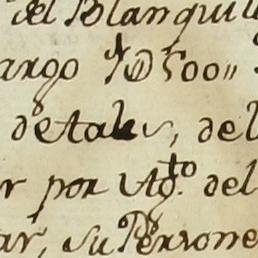 del Blanquill
argo
detales, del
r por Ag.to del
ar, su Persone